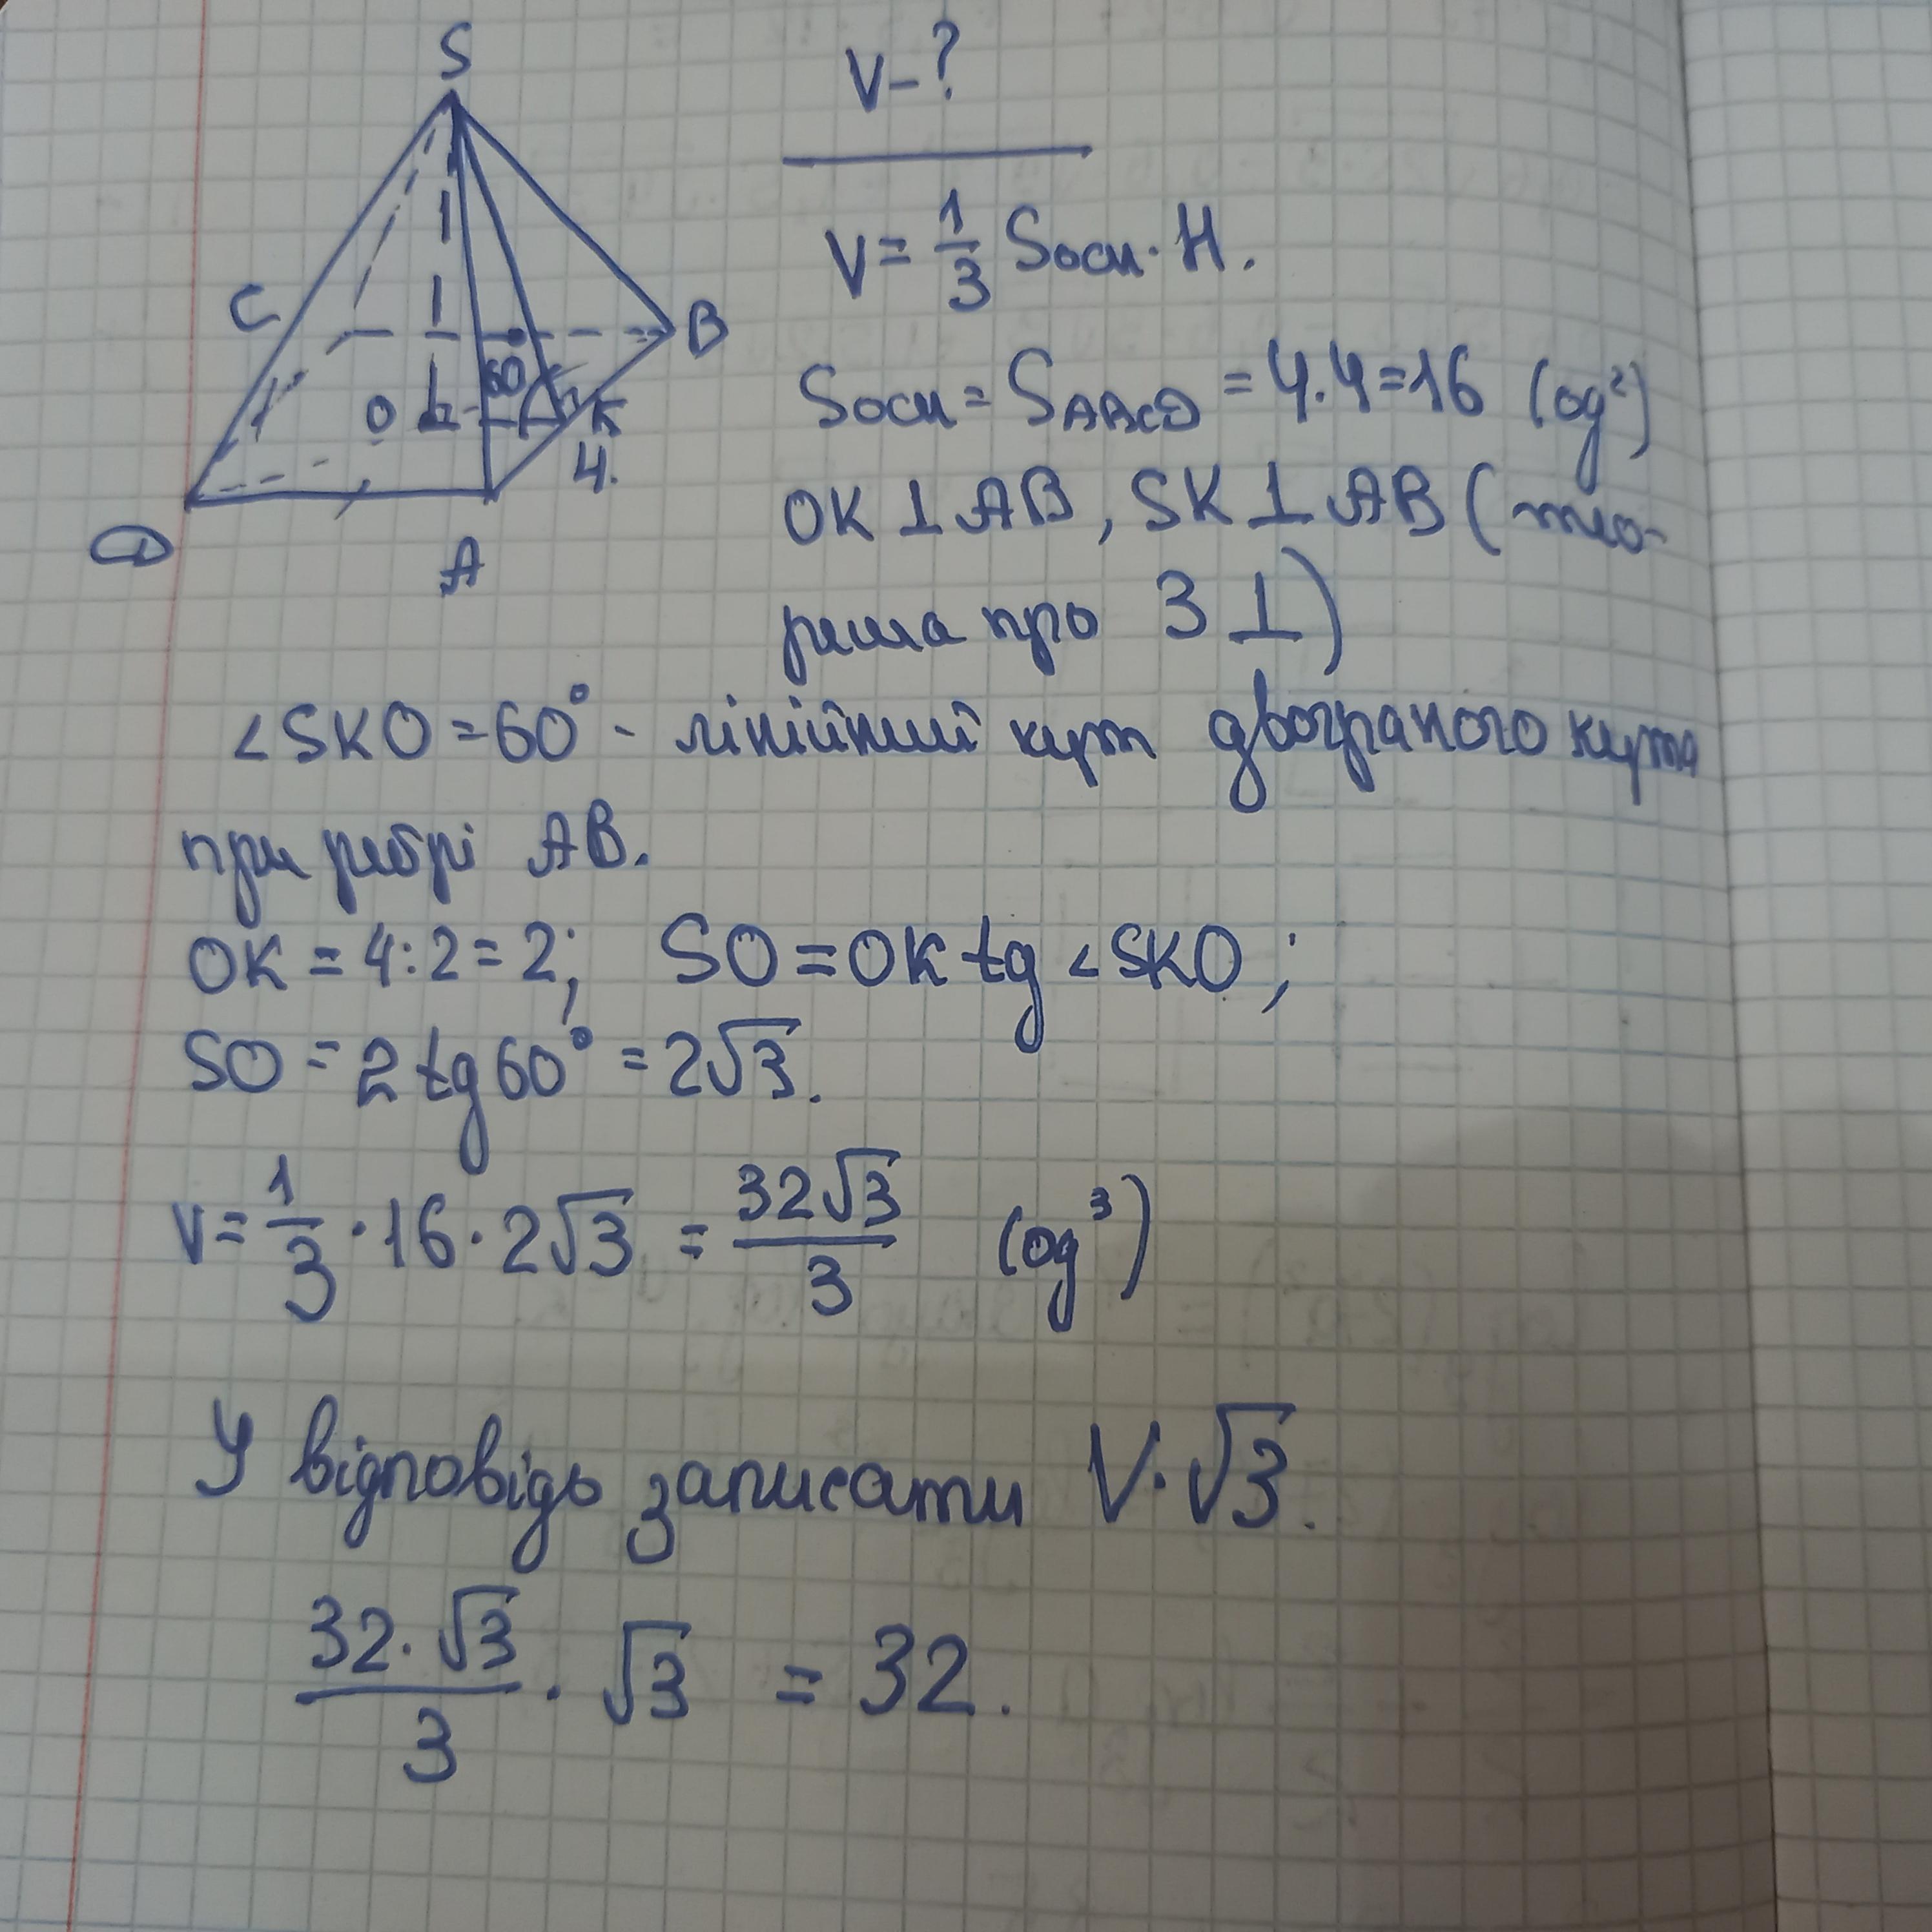 S
V-?
C
B
O
60
K
4.
D
A
V = 1/3 Sосн · H.
Sосн = SABCD = 4.4=16 (од²)
OK ⊥ AB, SK ⊥ AB (тео-
рема про 3 ⊥)
∠SKO = 60° - лінійний кут двограного кута
при ребрі AB.
OK = 4:2 = 2; SO = OK tg ∠SKO;
SO = 2 tg 60° = 2√3.
V = 1/3 · 16 · 2√3 = 32√3/3 (од³)
У відповідь записати V·√3.
32·√3/3 · √3 = 32.